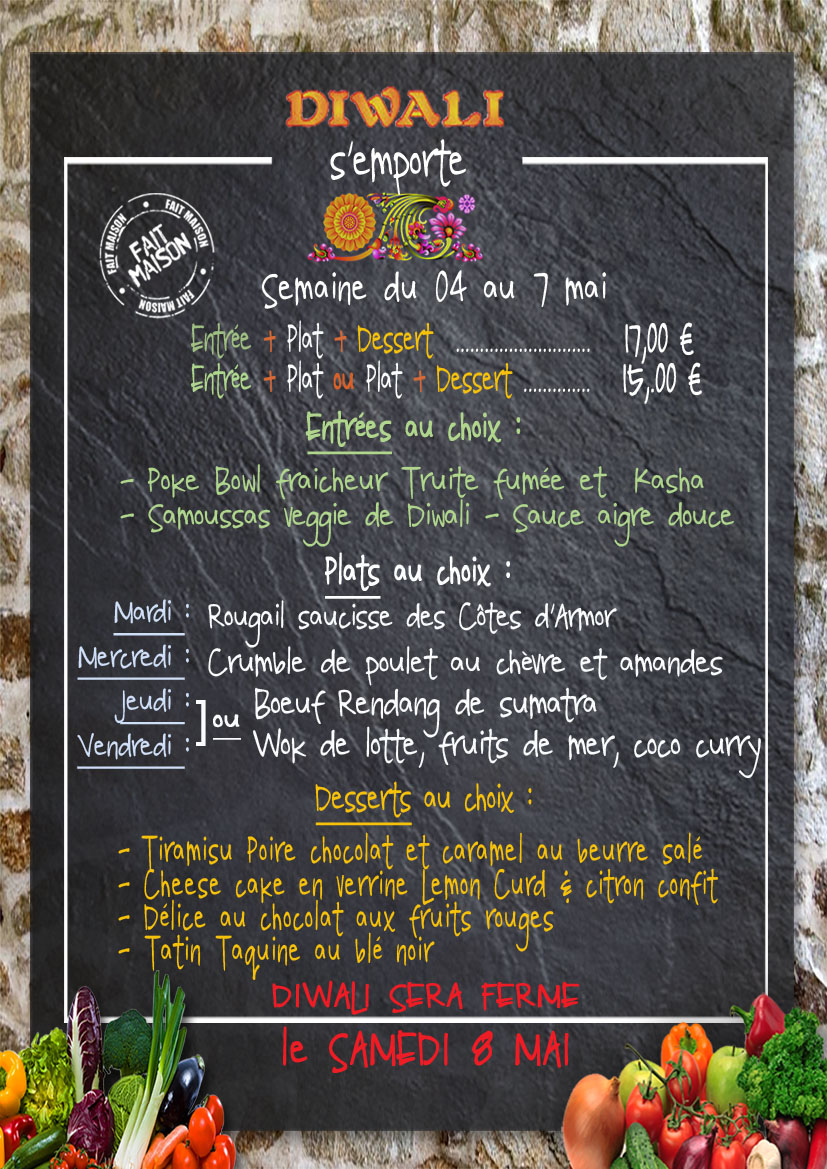 DIWALI
s'emporte
FAIT MAISON
FAIT MAISON
FAIT
MAISON
FAIT MAISON
Semaine du 04 au 7 mai
Entrée + Plat + Dessert ............................ 17,00 €
Entrée + Plat ou Plat + Dessert .............. 15,.00 €
Entrées au choix :
- Poke Bowl fraicheur Truite fumée et Kasha
- Samoussas veggie de Diwali - Sauce aigre douce
Plats au choix :
Mardi : Rougail saucisse des Côtes d'Armor
Mercredi : Crumble de poulet au chèvre et amandes
Jeudi : Boeuf Rendang de sumatra
ou
Vendredi : Wok de lotte, fruits de mer, coco curry
Desserts au choix :
- Tiramisu Poire chocolat et caramel au beurre salé
- Cheese cake en verrine Lemon Curd & citron confit
- Délice au chocolat aux fruits rouges
- Tatin Taquine au blé noir
DIWALI SERA FERME
le SAMEDI 8 MAI